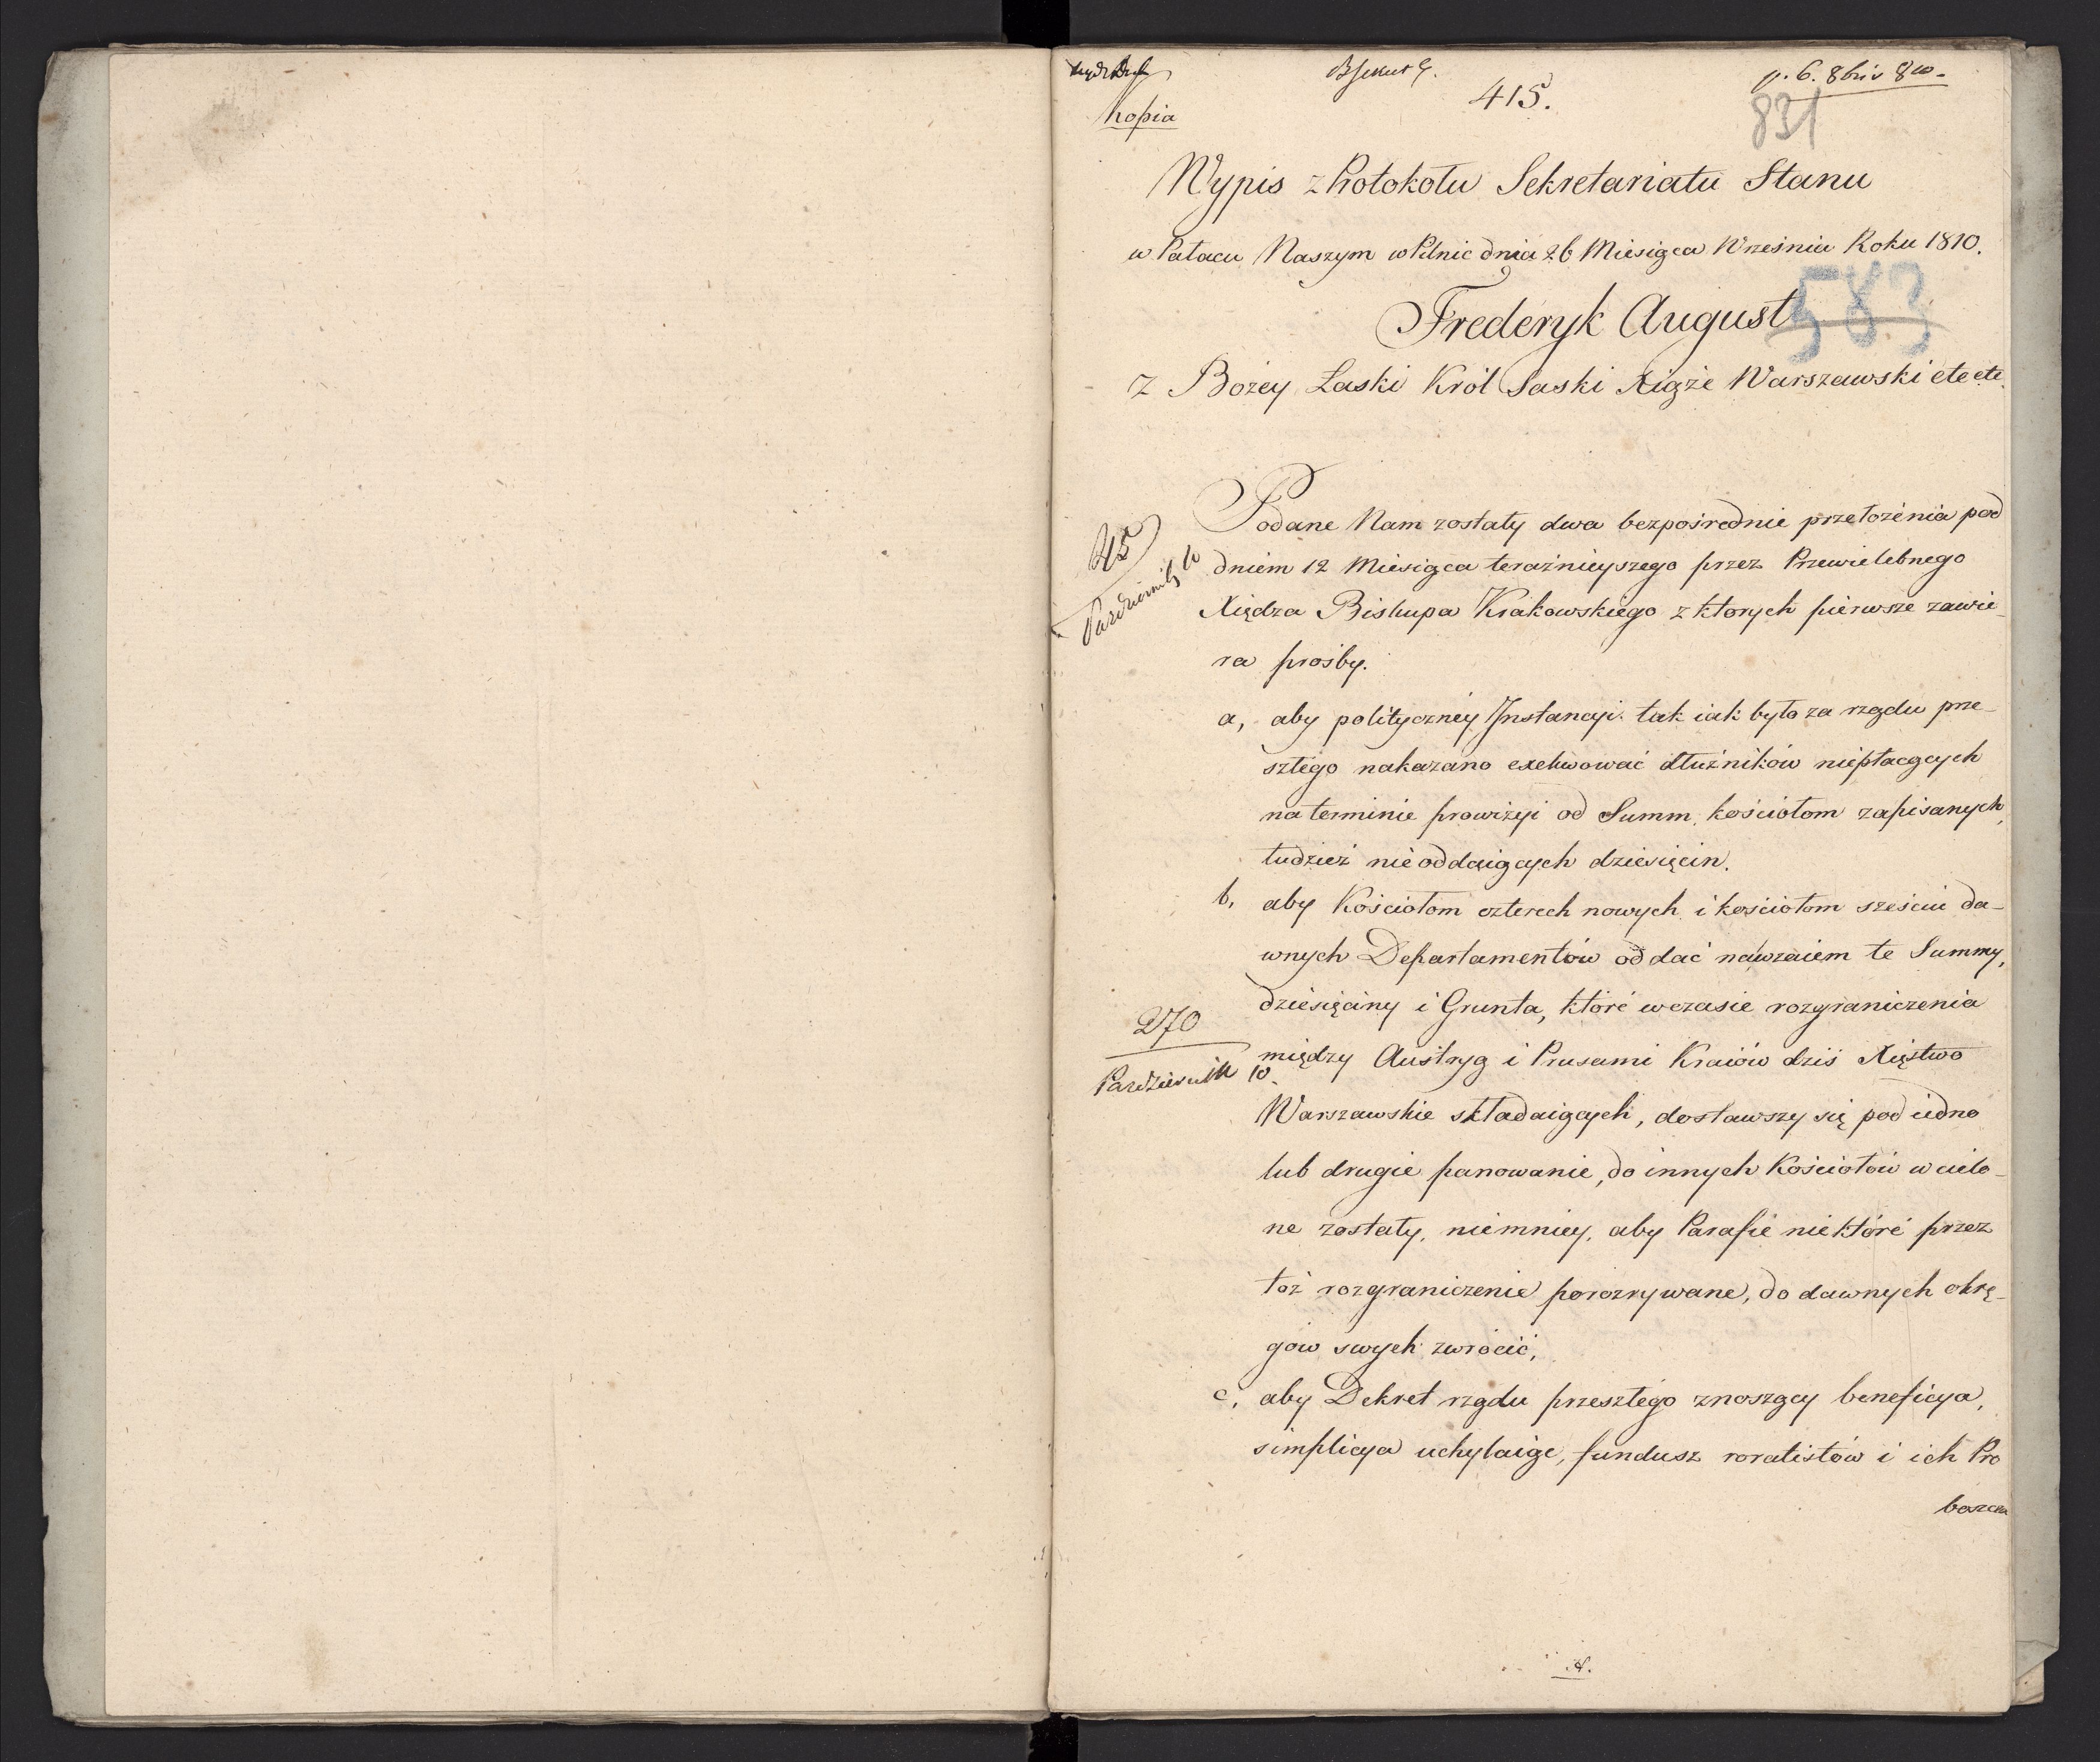 Kopia
415.
p. 6. 8bris 810.
831
Wypis z Protokołu Sekretariatu Stanu
w Pałacu Naszym w Pilnic dnia 26 Miesiąca Wrzesnia Roku 1810.
583
Frederyk August
z Bożey Łaski Król Saski Xiąże Warszawski etc etc.
Podane Nam zostały dwa bezpośrednie przełożenia pod
45
Pazdziernik 10
dniem 12 Miesiąca teraźnieyszego przez Przewielebnego
Xiędza Biskupa Krakowskiego z ktorych pierwsze zawie-
ra prośby.
a, aby polityczney Instancyi tak iak było za rządu prze-
szłego nakazano exekwować dłużników niepłacących
na terminie prowizyi od Summ kościołom zapisanych,
tudzież nieoddaiących dziesięcin.
b, aby Kościołom czterech nowych i kościołom sześciu da-
wnych Departamentów oddać nawzaiem te Summy,
dziesięciny i Grunta, które wczasie rozgraniczenia
270
Pazdziernik 10.
między Austryą i Prusami Kraiów dziś Xięstwo
Warszawskie składaiących, dostawszy się pod iedno
lub drugie panowanie, do innych Kościołów wcielo-
ne zostały, niemniey, aby Parafie niektóre przez
toż rozgraniczenie porozrywane, do dawnych okrę-
gow swych zwrócić,
c, aby Dekret rządu przeszłego znoszący beneficya,
simplicya uchylaiąc, fundusz roratistów i ich Pro
boszcza